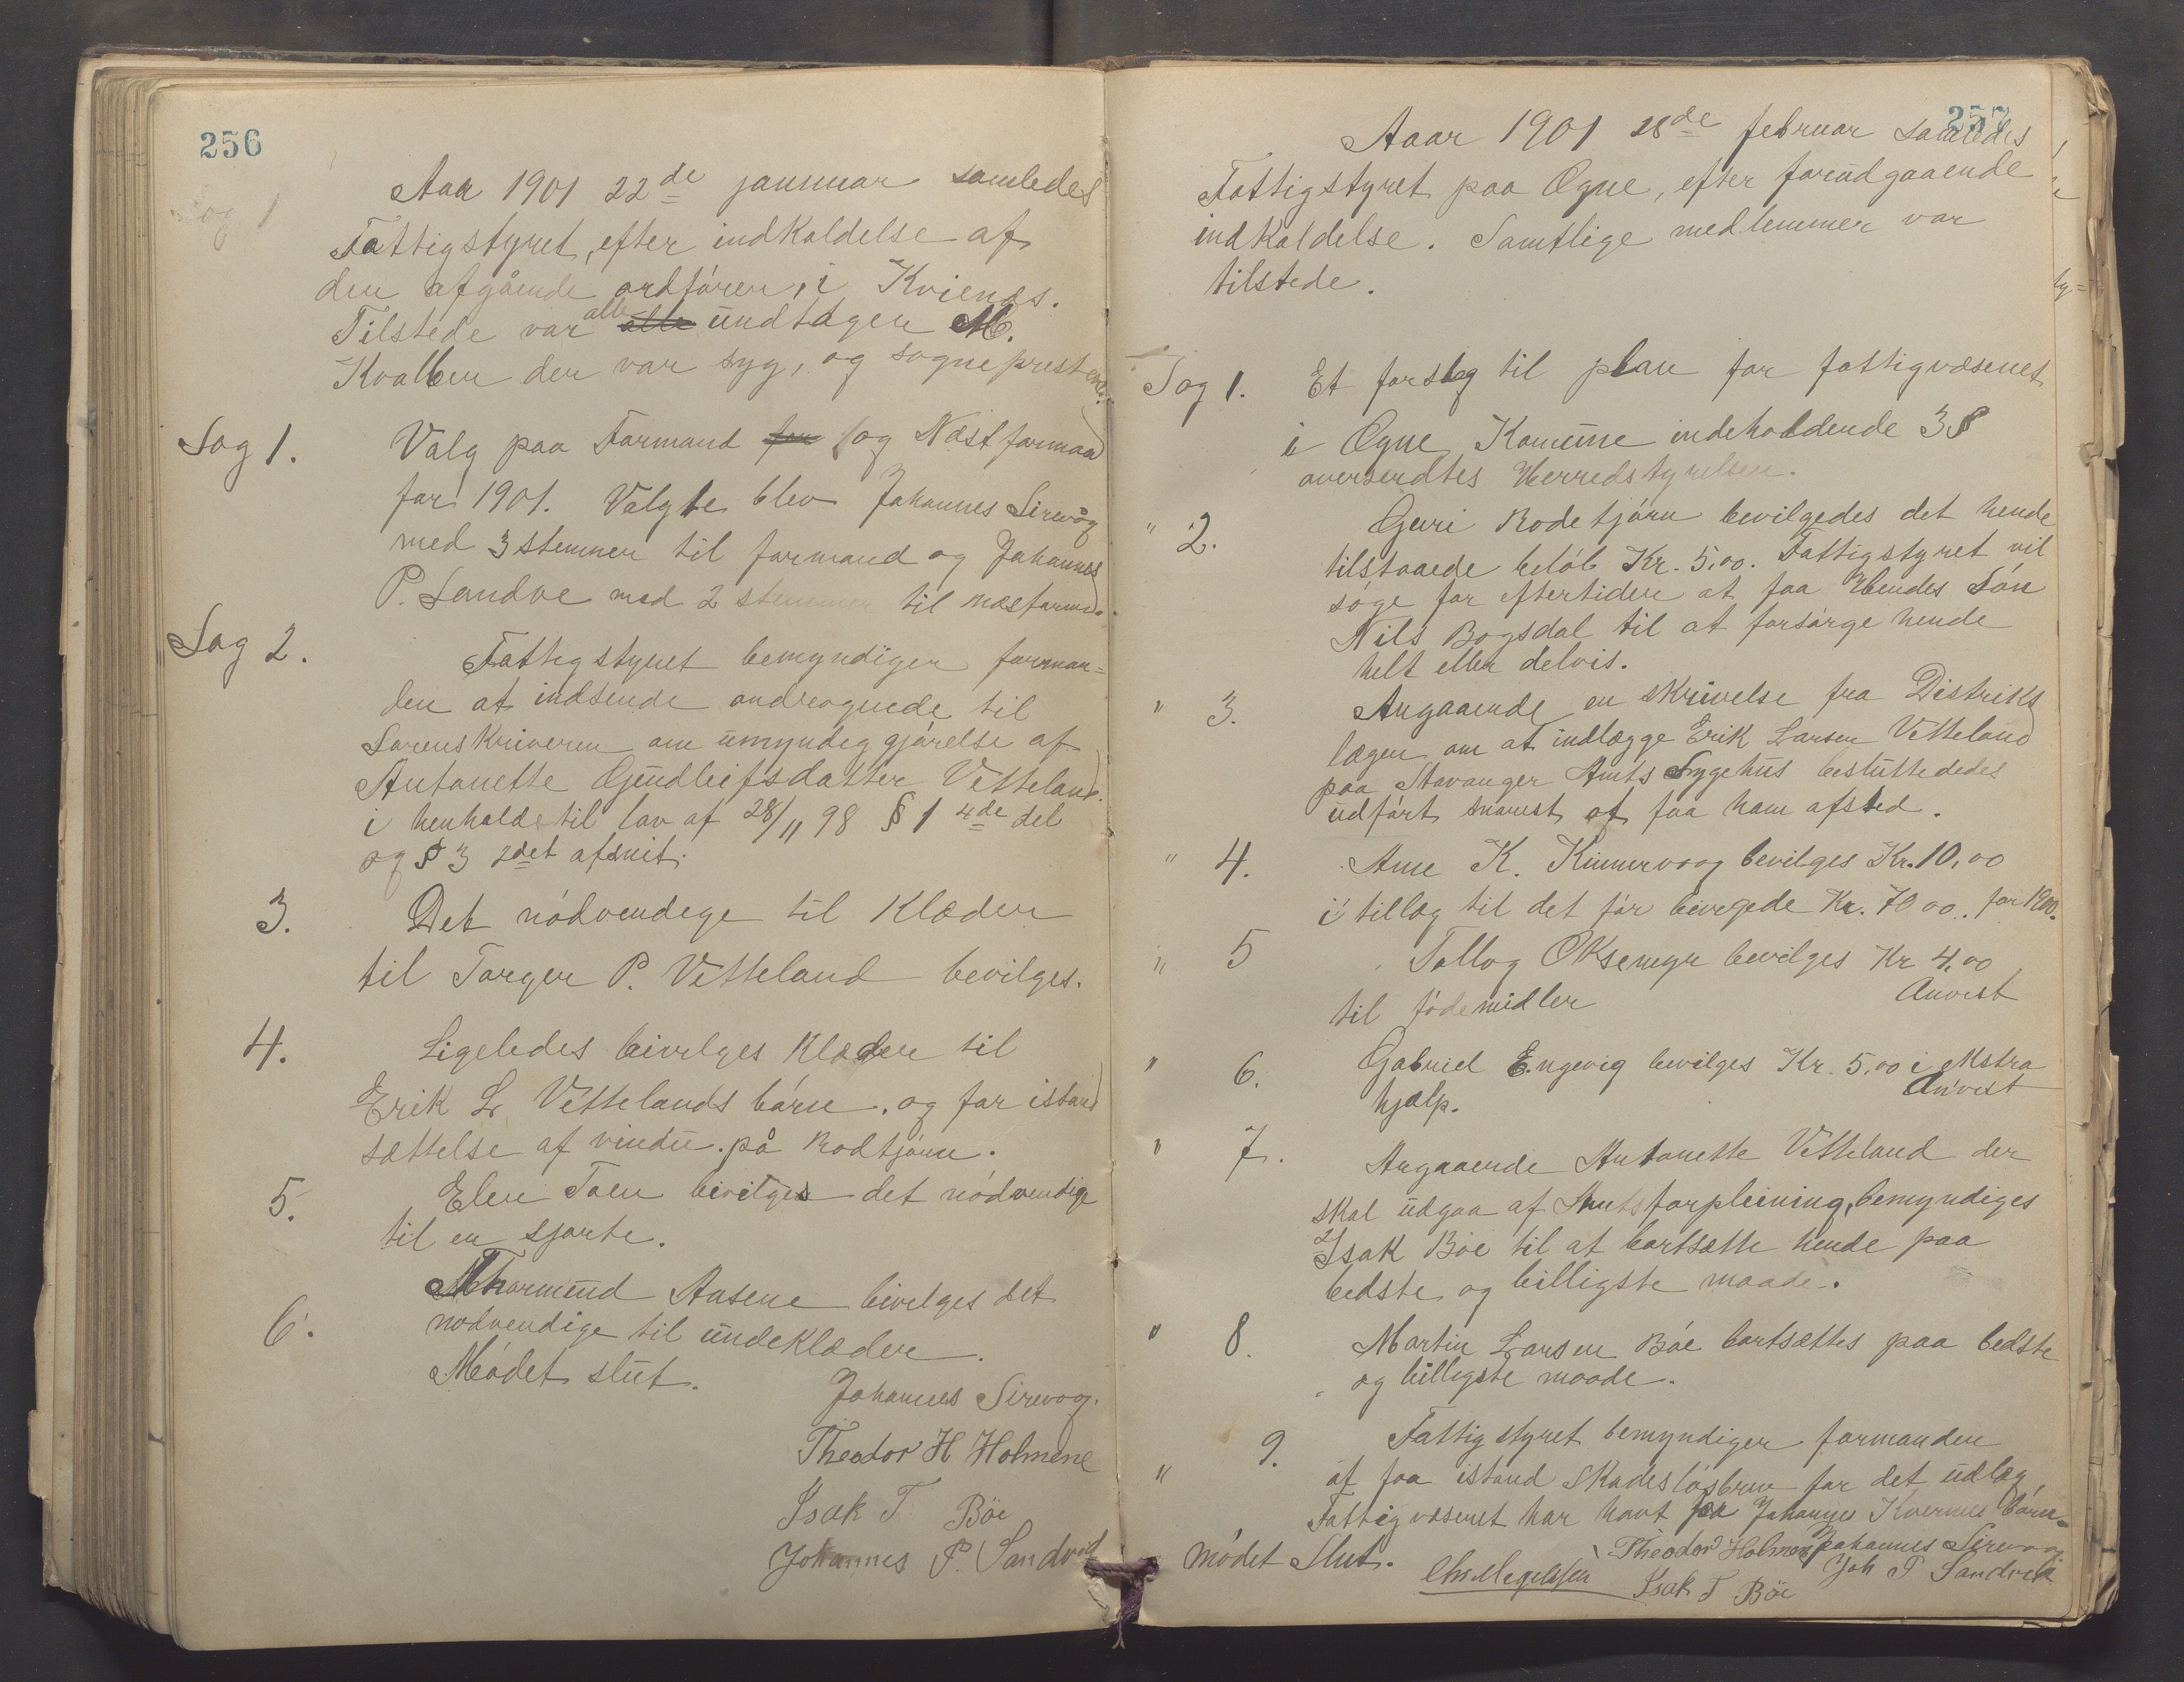 256
Aaa 1901 22de jannuar samledes
Fattigstyret, efter indkaldelse af
den afgående ordfører, i Kvienes.
Tilstede var alle undtagen M.
Kvalben der var syg, og sogneprest
Sag 1. Valg paa Formand og Næstformand
for 1901. Valgte blev Johannes Sirevåg
med 3 stemmer til formand og Johannes
P. Sandve med 2 stemmer til næstformd.
Sag 2. Fattigstyret bemyndiger forman=
den at indsende andragende til
Sorenskriveren om umyndeggjørelse af
Antonette Gundleifsdatter Vetteland.
i henhold til lov af 28/11 98 § 1 4de del
og § 3 2det afsnit.
3. Det nødvendege til Klæder
til Torger P. Vetteland bevilges.
4. Ligeledes bevilges Klæder til
Erik L. Vettelands børn, og for istand
sættelse af vindu på Rodtjørn.
5. Elen Toen bevilges det nødvendige
til en sjorte.
6. Thormund Aasene bevilges det
nødvendige til undeklæder.
Mødet slut.
Johannes Sirevog.
Theodor H Holmene
Isak T. Bøe
Johannes P. Sandvid
257
Aaar 1901 28de februar samledes
Fattigstyret paa Ogne, efter forudgaaende
indkaldelse. Samtlige medlemmer var
tilstede.
Sag 1. Et forslag til plan for fattigvæsenet
i Ogne Komune indeholdende 3 §
oversendtes Herredstyrelsen.
" 2. Guri Rodetjørn bevilgedes det hende
tilstaaede beløb Kr. 5,00. Fattigstyret vil
søge for eftertiden at faa Hendes Søn
Nils Bogsdal til at forsørge hende
helt eller delvis.
" 3. Angaaende en skrivelse fra Distriks
lægen om at indlægge Erik Larsen Vetteland
paa Stavanger Amts Sygehus besluttededes
udført snarest at faa ham afsted.
" 4. Ane K. Kinnervaag bevilges Kr. 10,00
i tillæg til det før bevilgede Kr. 70,00. for 1900.
" 5 Tollag Oksemyr bevilges Kr 4,00
til fødemidler Anvist
" 6. Gabriel Engevig bevilges Kr. 5,00 i ekstra
hjælp. Anvist
" 7. Angaaende Antonette Vetteland der
skal udgaa af Amtsforpleining, bemyndiges
Isak Bøe til at bortsætte hende paa
bedste og billigste maade.
" 8. Martin Larsen Bøe bortsættes paa bedste
og billigste maade.
" 9. Fattigstyret bemyndiger formanden
at faa istand Skadesløsbrev for det udlæg
Fattigvæsenet har havt paa Johannes Kvernes børn.
mødet Slut.
Theodor Holmene Johannes Sirevaag
Isak T Bøe Joh P Sandvik